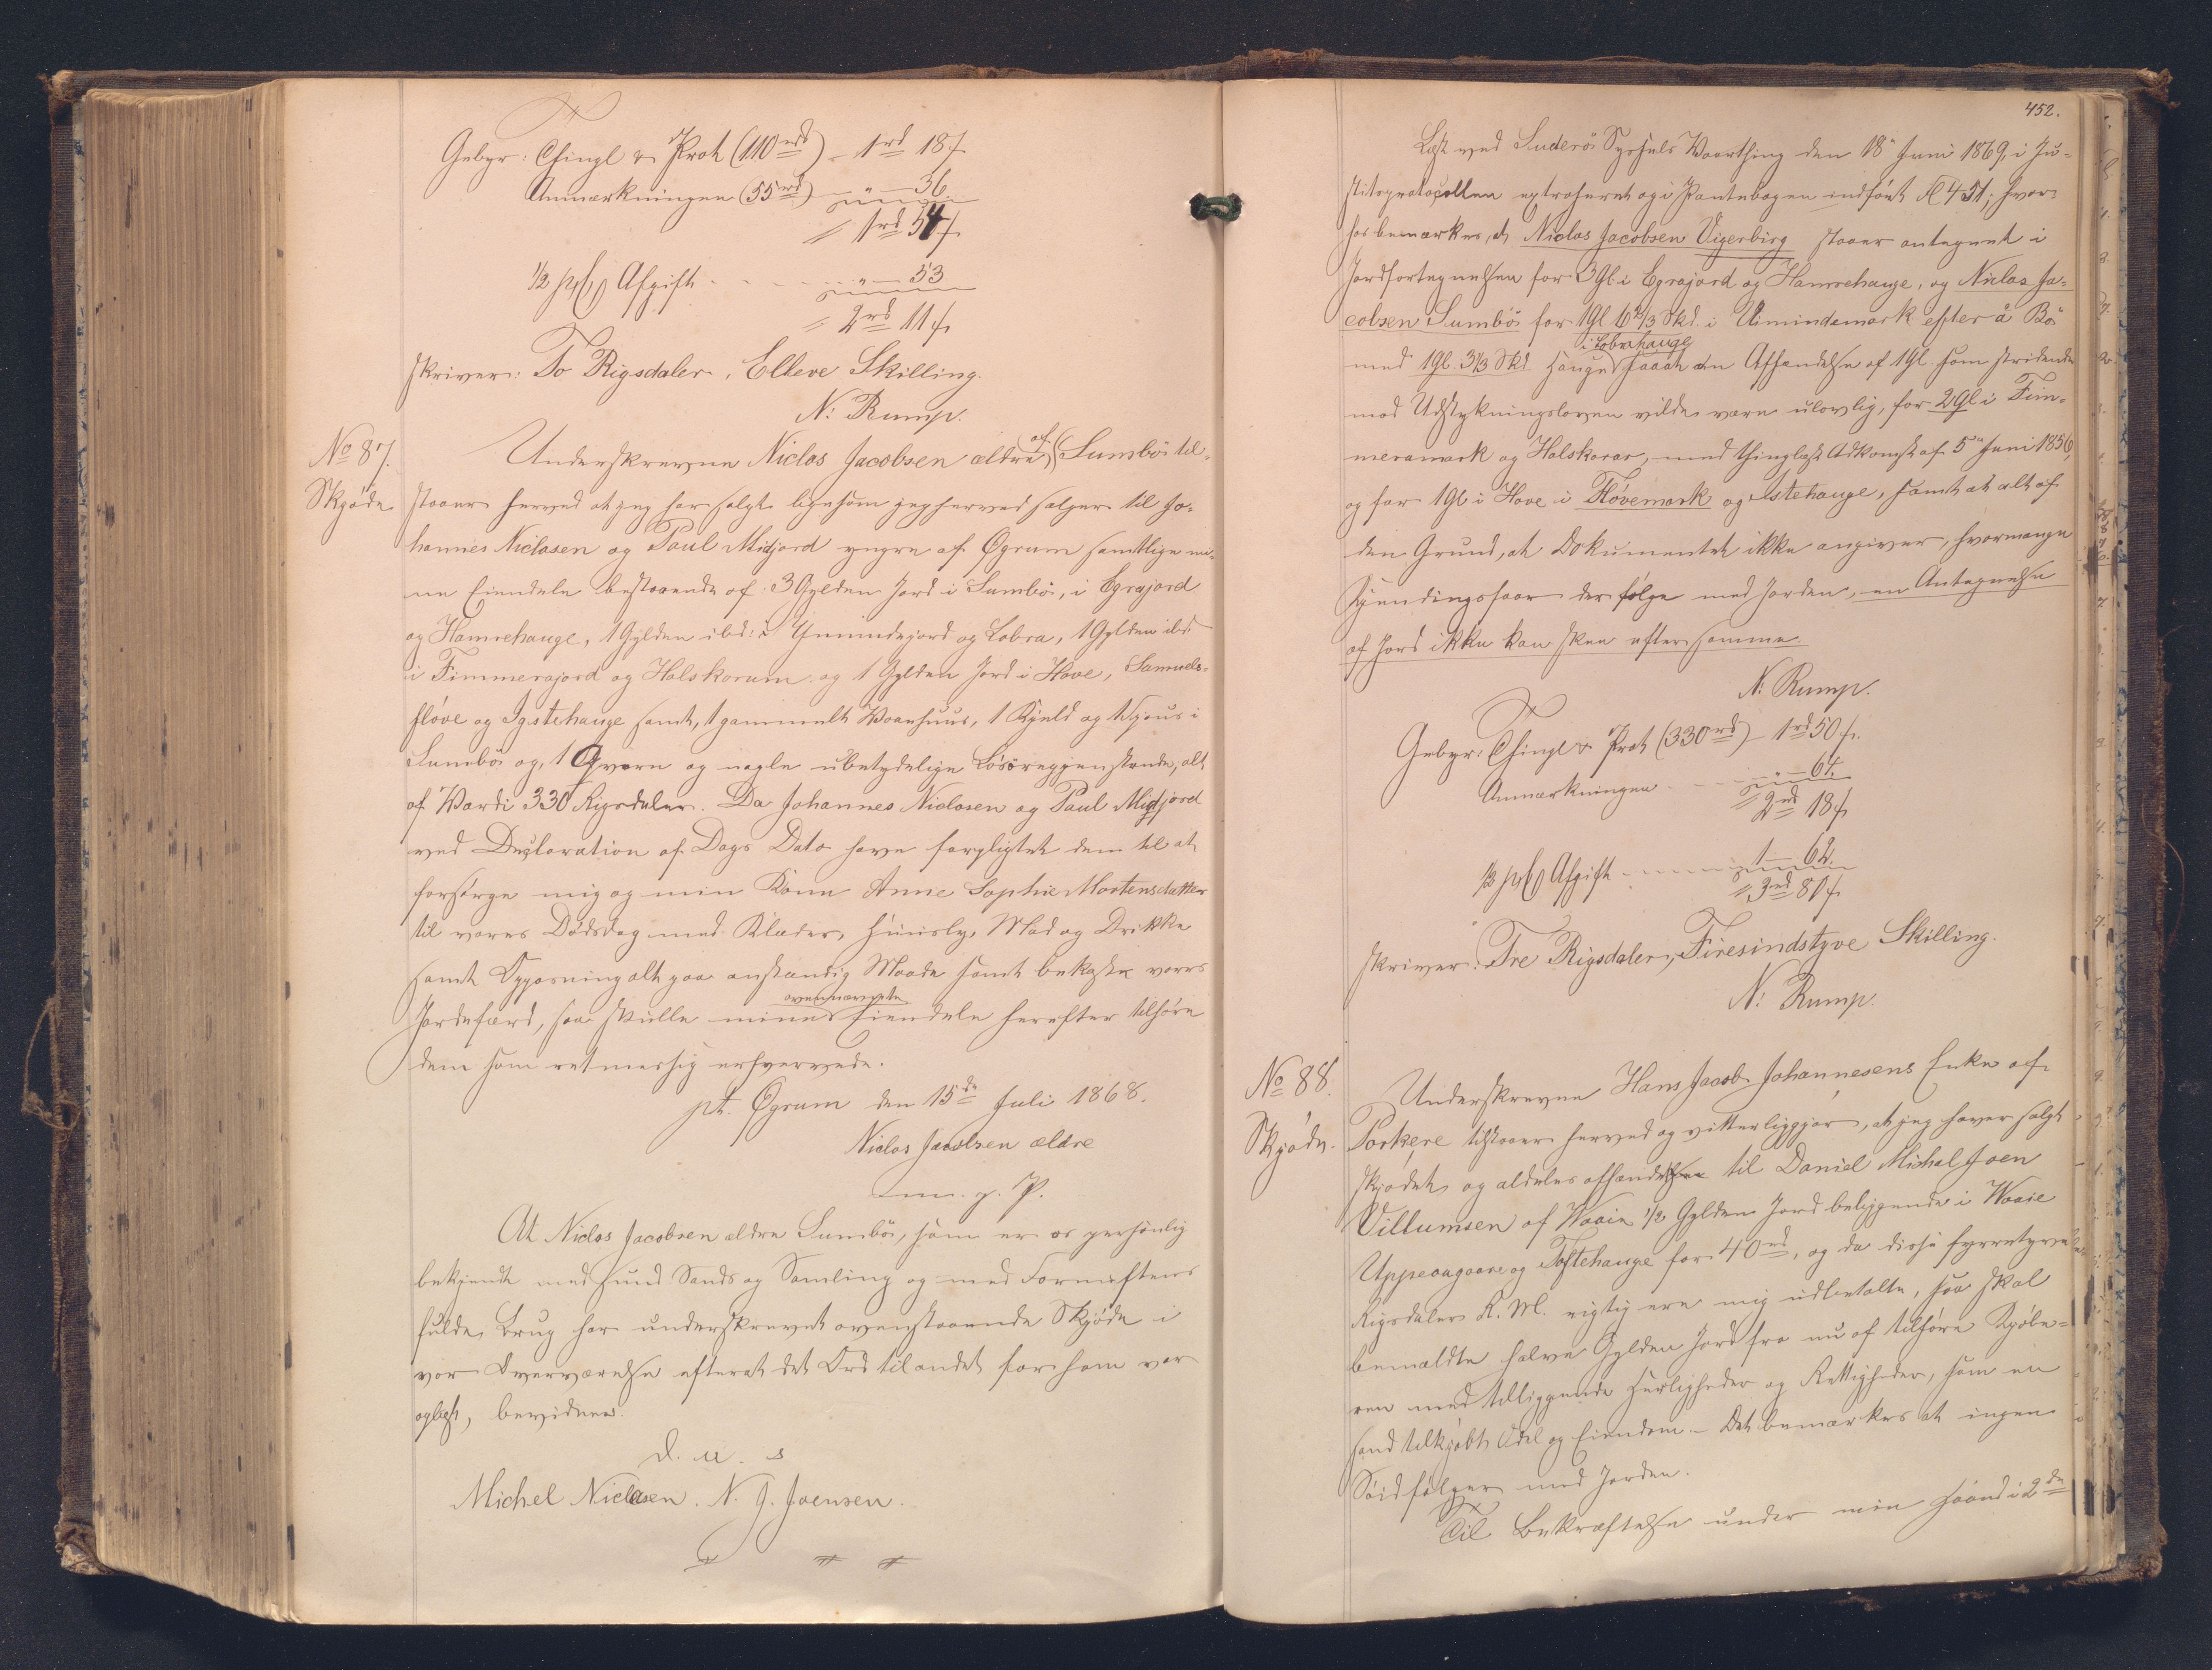 Gebyr: Thingl & Prot (110 rd) - 1 rd 18 ſ
Anmærkningen (55 rd) - " - 36.
1 rd 54 ſ
1/2 pCt Afgift - - - " - 53
2 rd 11 ſ
skriver: To Rigsdaler, Elleve Skilling.
N: Rump.
No 87.
Skjøde
Underskrevne Niclas Jacobsen ældre af Sumbö til-
staaer herved at jeg har solgt ligesom jeg herved sælger til Jo-
hannes Niclasen og Poul Midjord yngre af Øgrum samtlige mi-
ne Eiendele bestaaende af: 3 Gylden Jord i Sumbö, i Egrajord
og Hamrehauge, 1 Gylden ibd: i Ymindejord og Lobra, 1 Gylden ibd.
i Fimmerajord og Halskorum og 1 Gylden Jord i Hove, Samuels-
fløve og Igstehauge samt, 1 gammelt Vaanhuus, 1 Kjeld og 1 Hjaus i
Sumbö og, 1 Qværn og nogle ubetydelige Løsøregjenstande, alt
af Værdi 330 Rigsdaler. Da Johannes Niclasen og Paul Midjord
ved Declaration af Dags Dato have forpligtet dem til at
forsørge mig og min Kone Anne Sophie Mortensdatter
til vores Dødsdag med Klæder, Huusly, Mad og Drikke
samt Opvarsning alt paa anstændig Maade samt bekoste vores
Jordefærd, saa skulle mine ovennævnte Eiendele herefter tilhøre
dem som retmessig erhvervede.
pt. Øgrum den 15de Juli 1868.
Niclas Jacobsen ældre
m. f. P.
At Niclas Jacobsen ældre Sumbö, som er os personlig
bekjendt med sund Sands og Samling og med Fornuftens
fulde Brug har underskrevet ovenstaaende Skjøde i
vor Overværelse efterat det Ord til andet for ham var
oplæst, bevidnes.
d. u. s
Michel Niclasen. N. J. Joensen.
452.
Læst ved Suderø Syssels Vaarthing den 18' Juni 1869, i Ju-
stitsprotocollen extraheret og i Pantebogen indført fl 451; hvor-
hos bemærkes, at Niclas Jacobsen Vigerbirg staaer antegnet i
Jordfortegnelsen for 3 Gl i Egrajord og Hamrehauge, og Niclas Ja-
cobsen Sumbö for 1 Gl. 6 2/3 Skd. i Uimindemark efter å Bö
med 1 Gl. 3 1/3 Skd Hauge i Lobrahauge saaat en Afhændelse af 1 Gl. som stridende
mod Udstykningsloven vilde være ulovlig, for 2 Gl i Fim-
meramark og Halskorar, med thinglæst Adkomst af 5' Juni 1856,
og for 1 Gl i Hove i Fløvemark og Istehauge, samt at alt af
den Grund, at Dokumentet ikke angiver, hvormange
Kjendingsfaar der følge med Jorden, en Antegnelse
af Jord ikke kan skee efter samme.
N: Rump.
Gebyr: Thingl & Prot (330 rd) - 1 rd 50 ſ.
Anmærkningen - - - " - 64.
2 rd 18 ſ
1/2 pCt Afgift - - - - 1 - 62.
3 rd 80 ſ
skriver: Tre Rigsdaler, Firesindstyve Skilling.
N: Rump.
No 88.
Skjøde.
Underskrevne Hans Jacob Johannesens Enke af
Porkere tilstaaer herved og vitterliggjør, at jeg haver solgt
skjødet og aldeles afhændet til Daniel Michal Joen
Villumsen af Waaie 1/2 Gylden Jord beliggende i Waaie
Uppeaagaare og Toftehauge for 40 rd, og da disse fyrretyve
Rigsdaler R. M. rigtig ere mig udbetalte, saa skal
bemældte halve Gylden Jord fra nu af tilhøre Kjøbe-
ren med tilliggende Herligheder og Rettigheder, som en
sand tilkjøbt Odel og Eiendom. - Det bemærkes at ingen
Söid følger med Jorden.
Til Bekræftelse under min Haand i 2de